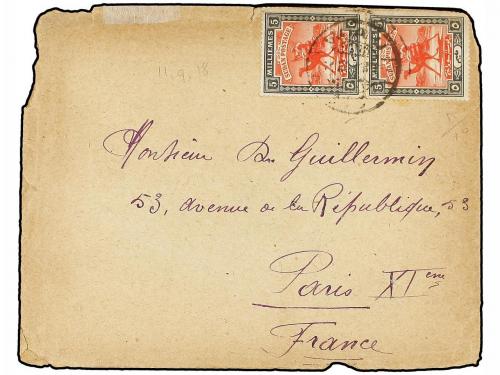 5 MILLIEMES 5
SUDAN POSTAGE
5 MILLIEMES 5
SUDAN POSTAGE
11.9.18
Monsieur Dr Guillermin
53, avenue de la République, 53
Paris XIeme
France